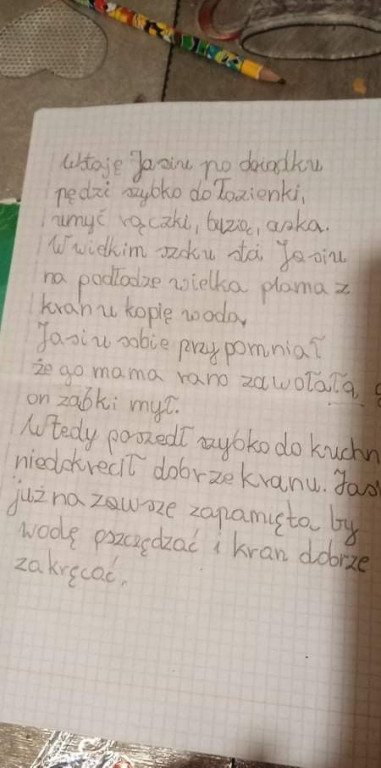 Wstaję Jasiu po obiadku
pędzi szybko do łazienki,
umyć rączki, buzię, uszka.
W wielkim szoku stoi Jasiu
na podłodze wielka plama z
kranu kopię woda,
Jasiu sobie przypomniał
że go mama rano zawołała
on ząbki mył.
Wtedy poszedł szybko do kuchn
niedokrecił dobrze kranu. Jas
już na zawsze zapamięta by
wodę oszczędzać i kran dobrze
zakręcać.